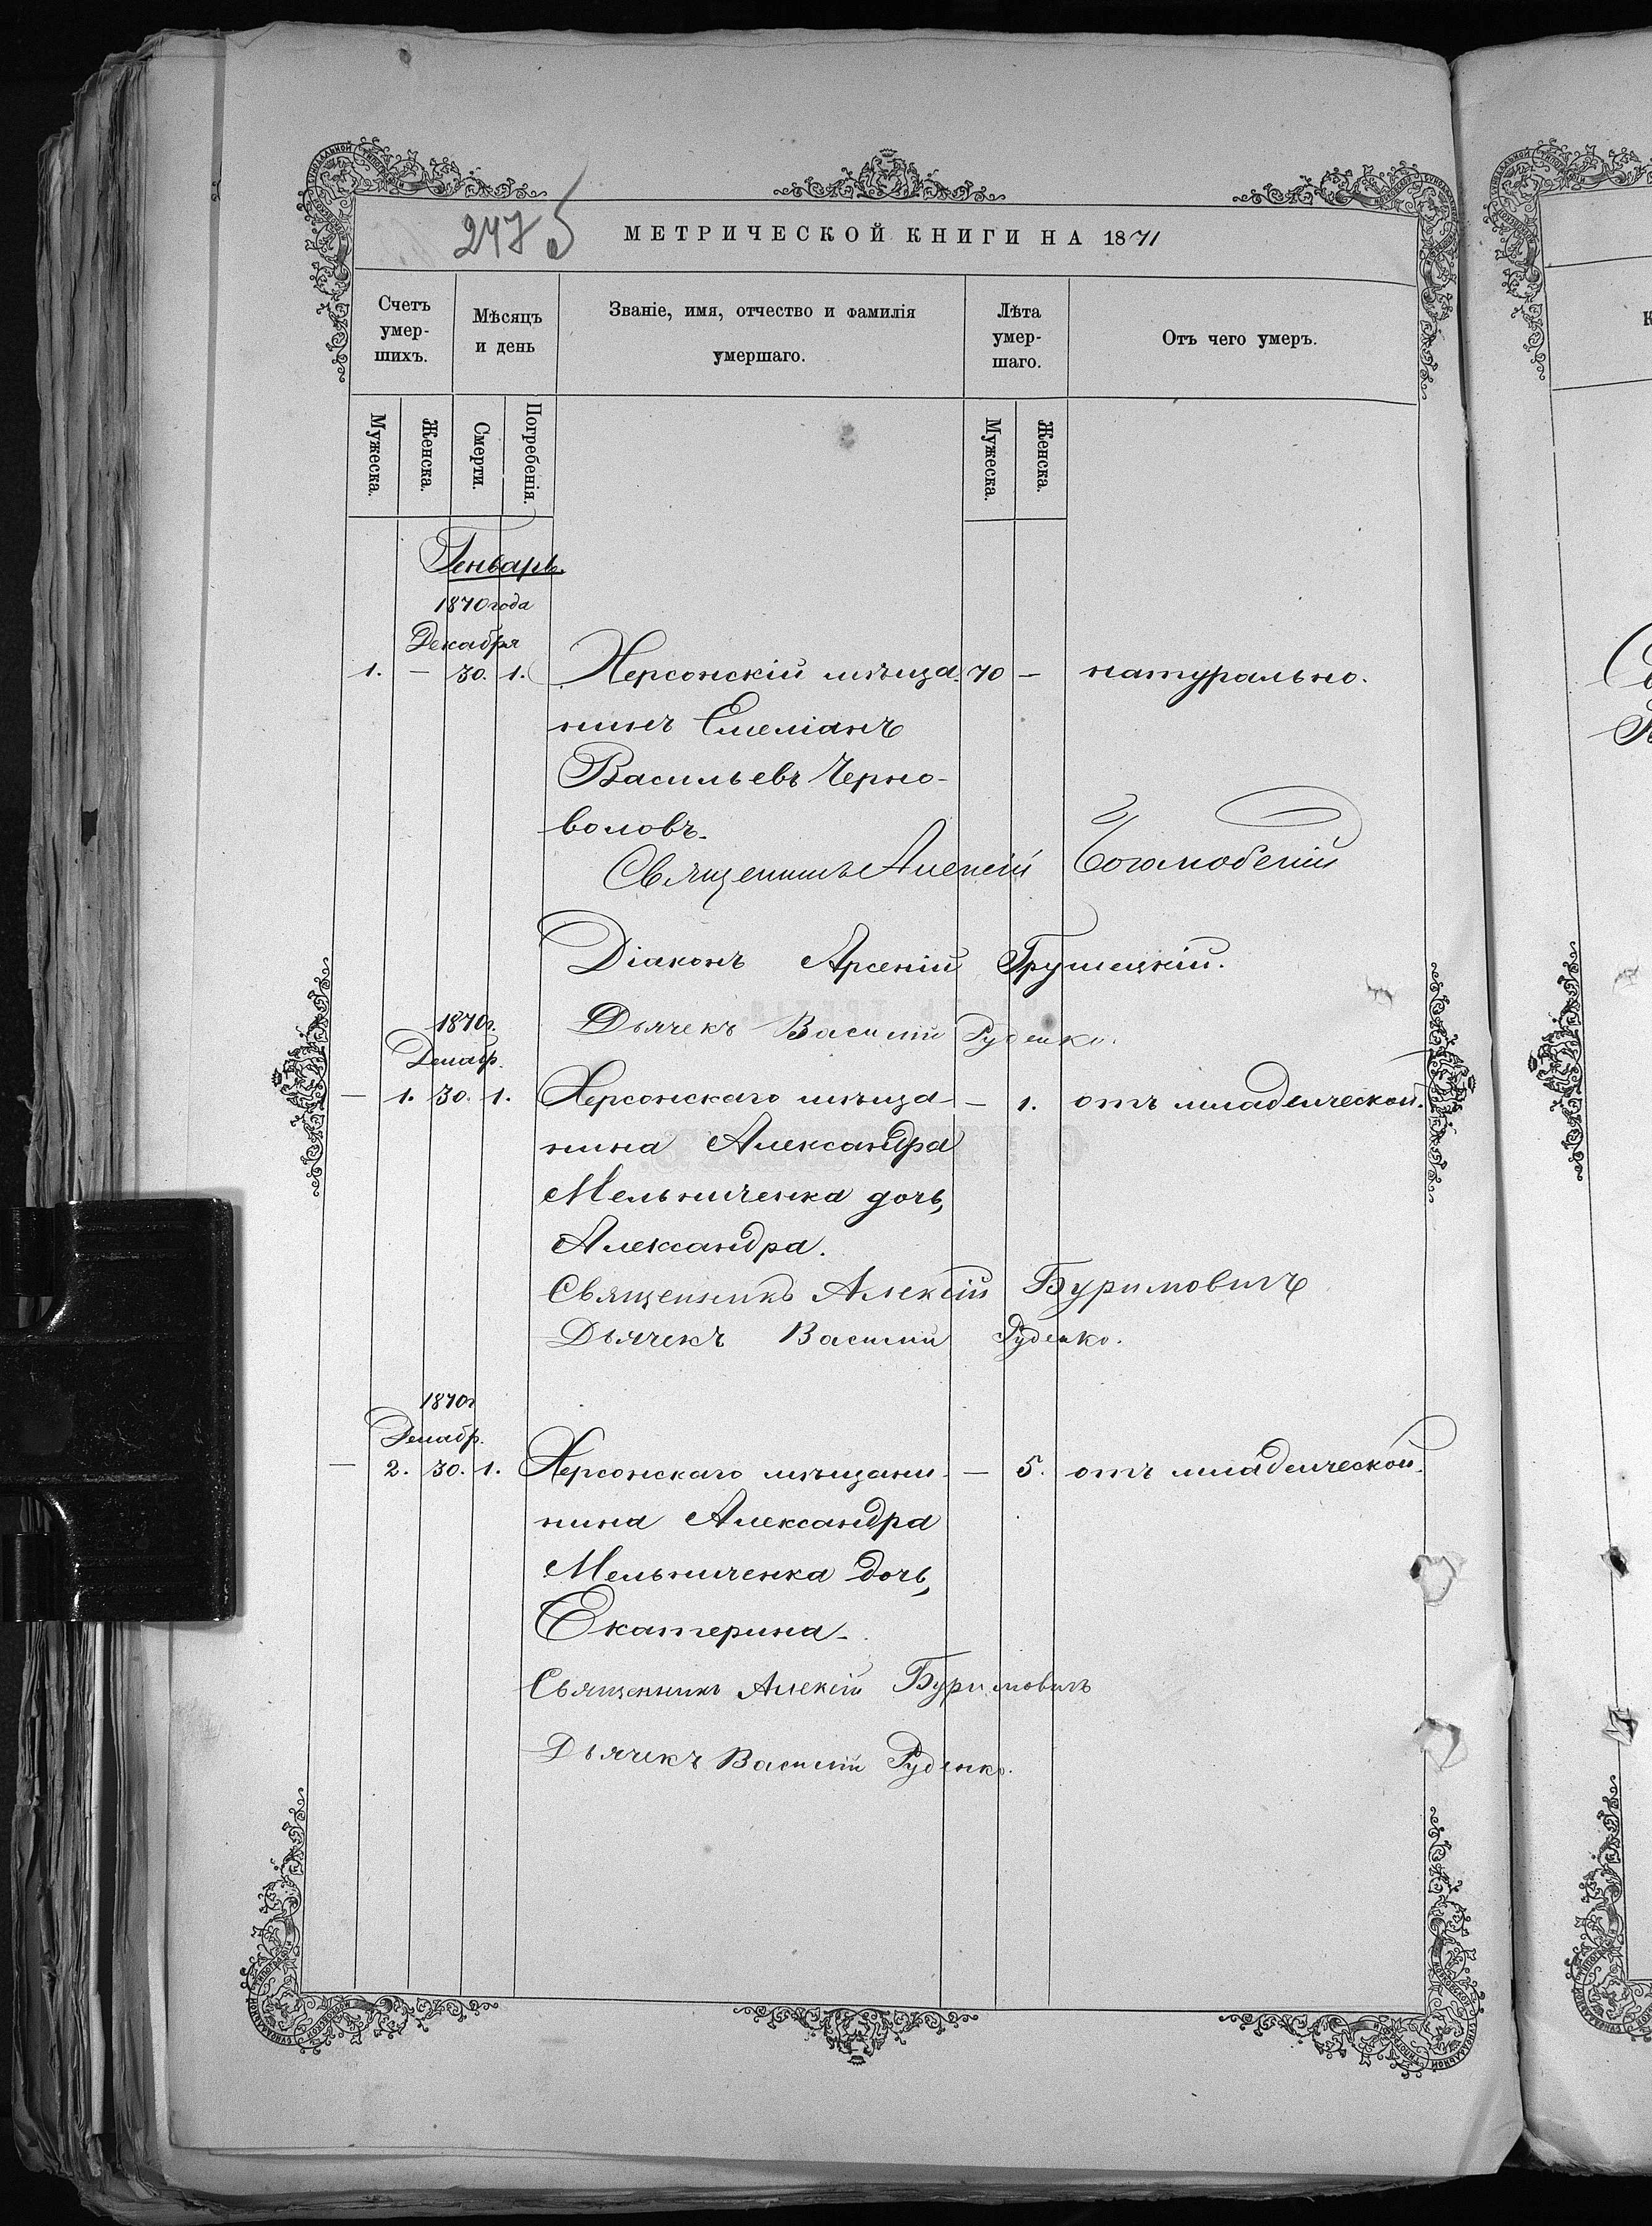 2475
МЕТРИЧЕСКОЙ КНИГИ НА 1871
Счетъ умер- шихъ.
Мѣсяцъ и день
Званіе, имя, отчество и фамилія умершаго.
Лѣта умер- шаго.
Отъ чего умеръ.
Мужеска.
Женска.
Смерти.
Погребенія.
Мужеска.
Женска.
Генварь.
1870 года
Декабря
1. — 30. 1. Херсонскій мѣща- 70 — натурально.
нинъ Емеліанъ
Васильевъ Черно-
воловъ.
Священникъ Алексій
Діаконъ Арсеній Грушецкій.
Дьячекъ Василій Руденко.
1870 г.
Декабр.
— 1. 30. 1. Херсонскаго мѣща- — 1. отъ младенческой.
нина Александра
Мельниченка дочь,
Александра.
Священникъ Алексій Буримовичъ
Дьячекъ Василій Руденко.
1870 г
Декабр.
— 2. 30. 1. Херсонскаго мѣщани- — 5. отъ младенческой.
нина Александра
Мельниченка дочь,
Екатерина.
Священникъ Алексій Буримовичъ
Дьячекъ Василій Руденко.